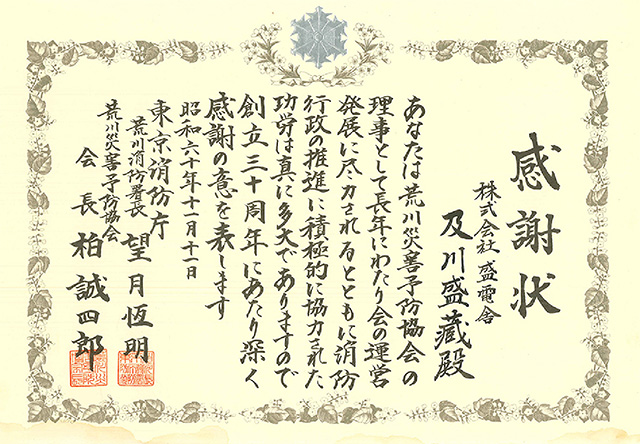 感謝状
株式会社 盛電舎
及川盛蔵殿
あなたは荒川災害予防協会の
理事として長年にわたり会の運営
発展に尽力されるとともに消防
行政の推進に積極的に協力された
功労は真に多大でありますので
創立三十周年にあたり深く
感謝の意を表します
昭和六十年十一月十一日
東京消防庁
荒川消防署長 望月恆明
荒川災害予防協会
会長 柏誠四郎